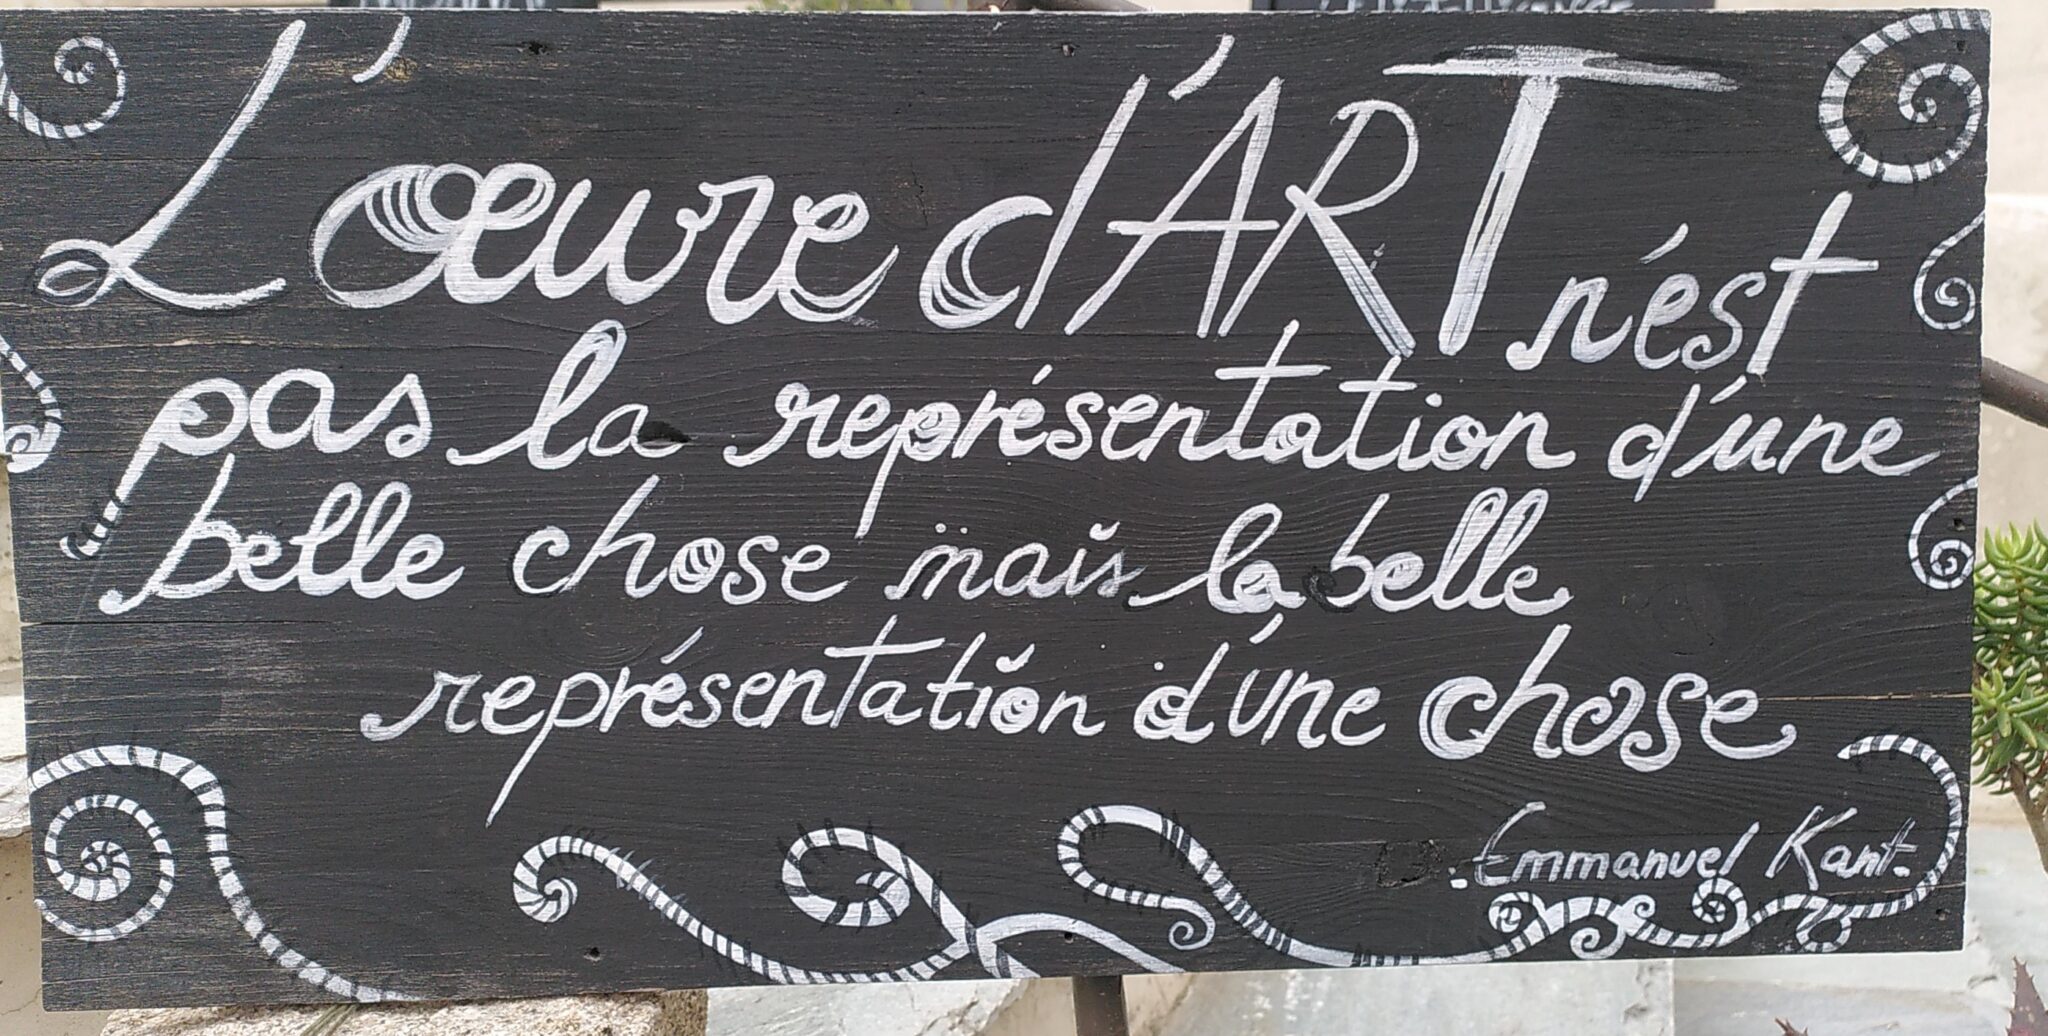 L'œuvre d'ART n'est
pas la représentation d'une
belle chose mais la belle
représentation d'une chose
Emmanuel Kant.